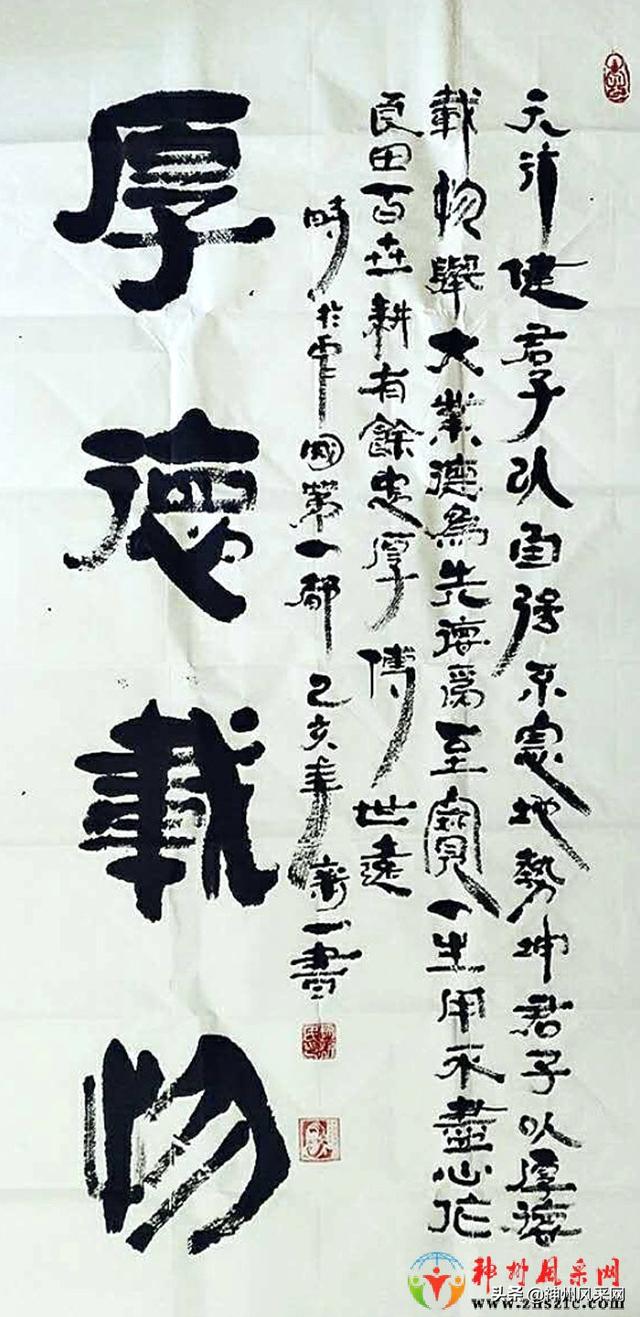 天行健君子以自強不息地勢坤君子以厚德
載物舉大業德為先德爲至寶一生用不盡心作
良田百世耕有餘忠厚傳世遠
時於中國第一都 己亥年 一書
厚德載物
神州风采网
www.znszfc.com
头条@神州风采网